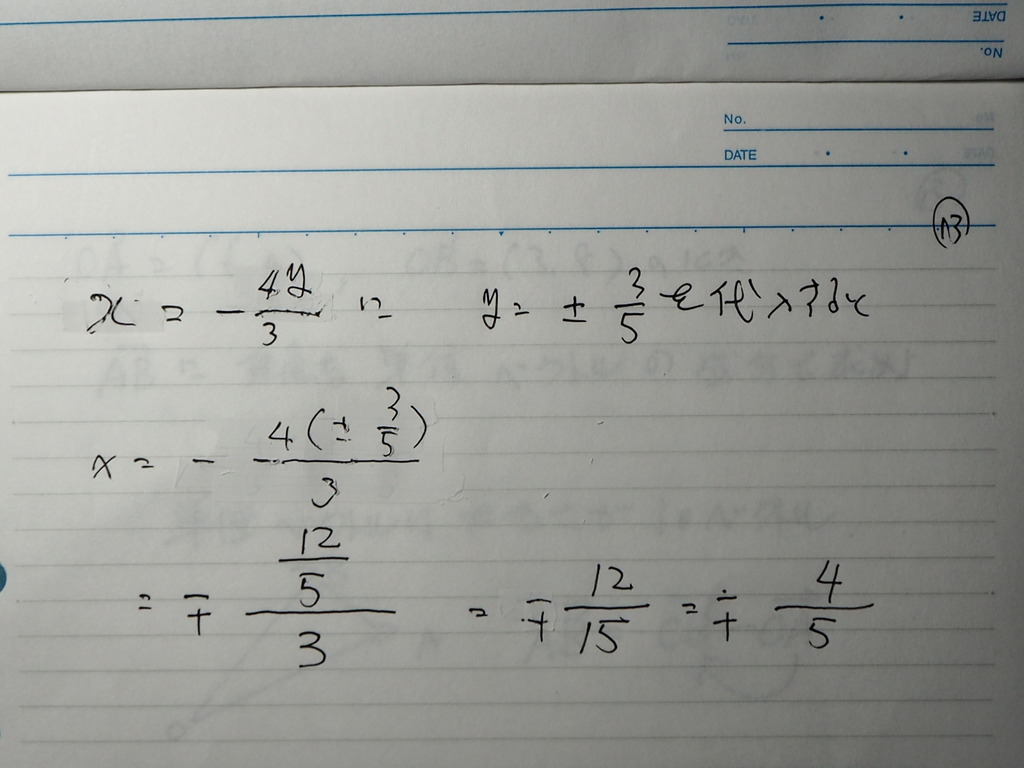 DATE
No.
No.
DATE
13
x = - 4y/3 に y = ± 3/5 を代入すると
x = - 4(± 3/5)/3
= ∓ (12/5)/3 = ∓ 12/15 = ∓ 4/5